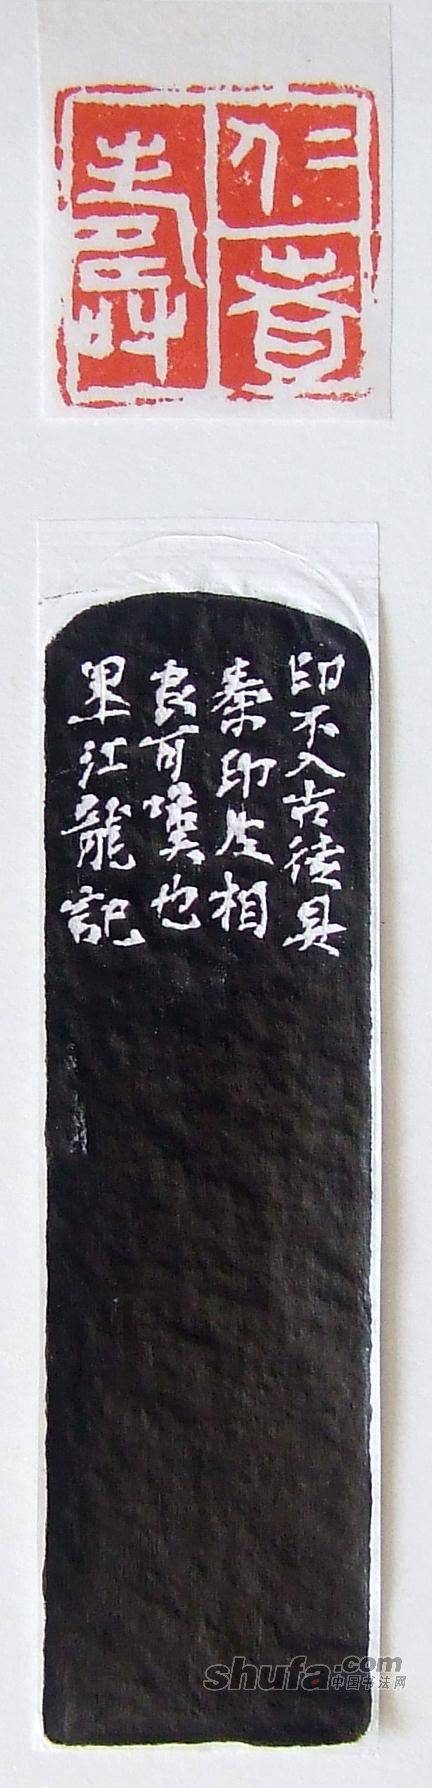 仁者
壽
印不入古徒具
秦印皮相
良可嘆也
江龍記
shufa.com
中国书法网